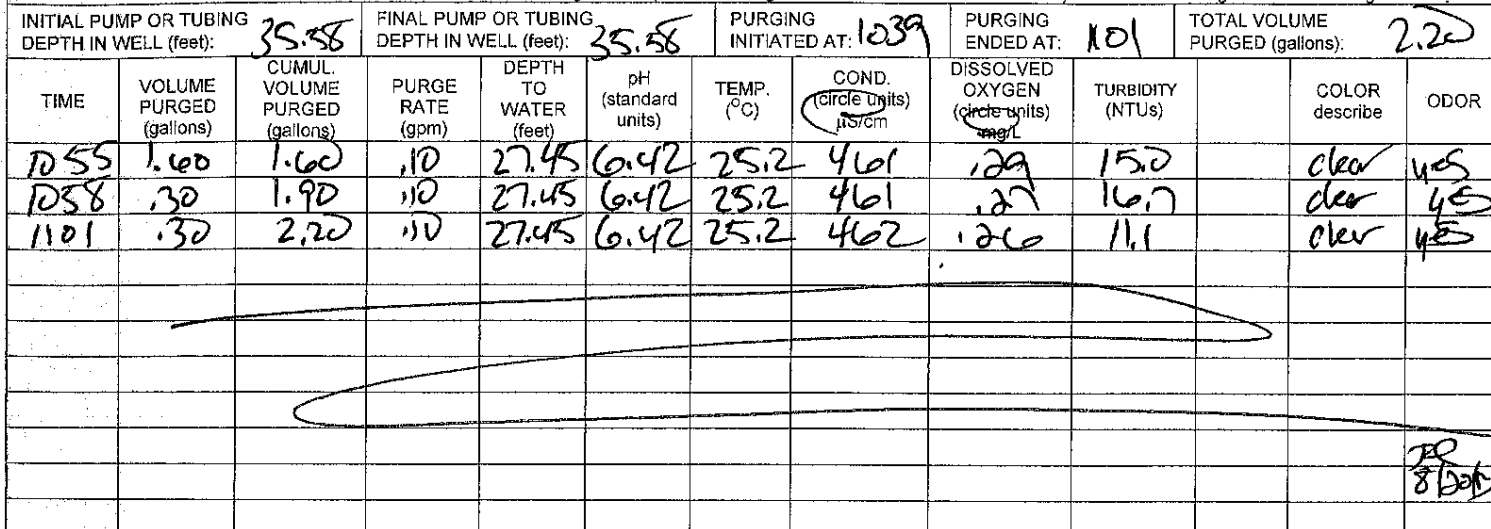 INITIAL PUMP OR TUBING DEPTH IN WELL (feet): 35.58 FINAL PUMP OR TUBING DEPTH IN WELL (feet): 35.58 PURGING INITIATED AT: 1039 PURGING ENDED AT: 1101 TOTAL VOLUME PURGED (gallons): 2.20
TIME VOLUME PURGED (gallons) CUMUL. VOLUME PURGED (gallons) PURGE RATE (gpm) DEPTH TO WATER (feet) pH (standard units) TEMP. (°C) COND. (circle units) µS/cm DISSOLVED OXYGEN (circle units) mg/L TURBIDITY (NTUs) COLOR describe ODOR
1055 1.60 1.60 .10 27.45 6.42 25.2 461 .29 15.0 clear yes
1058 .30 1.90 .10 27.45 6.42 25.2 461 .27 16.7 clear yes
1101 .30 2.20 .10 27.45 6.42 25.2 462 .26 11.1 clear yes